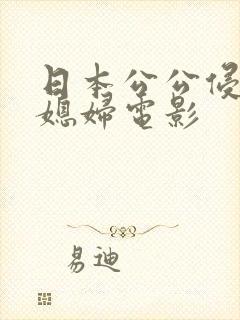 日本公公侵
媳婦電影
易迪